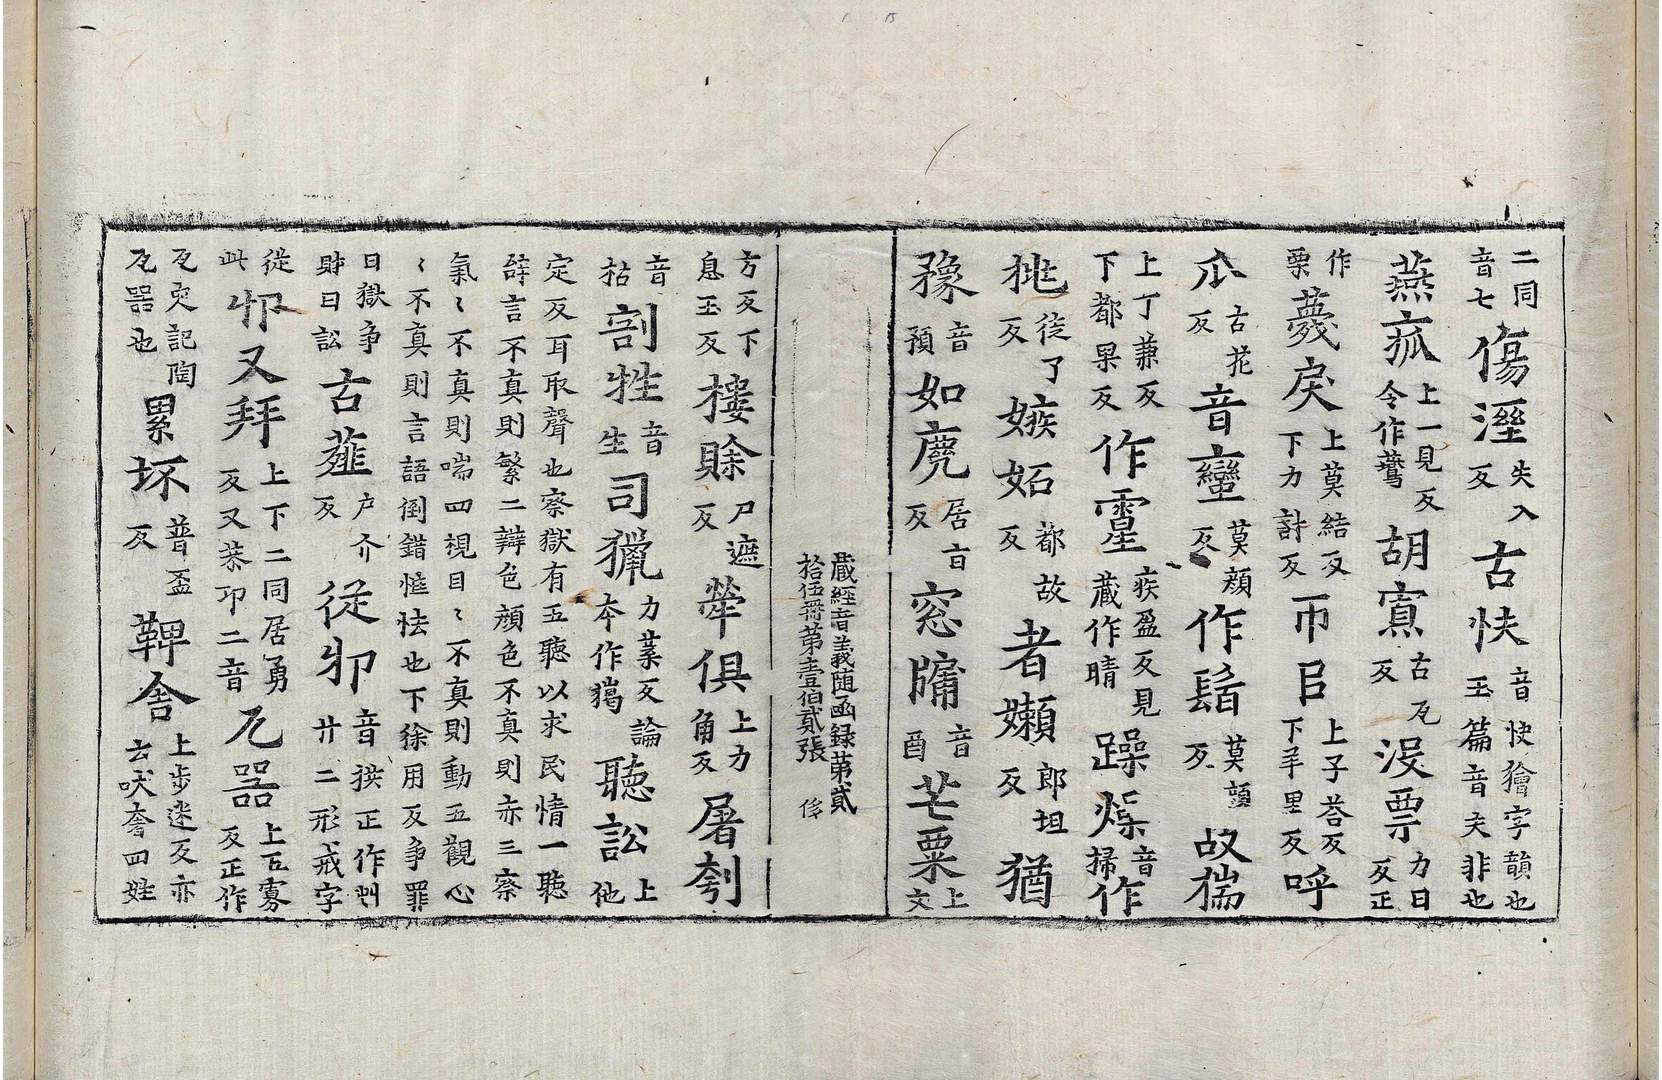 二同音七傷溼失入反古怏音快獪字韻也玉篇音夫非也
燕㼌上一見反令作鷰胡寡古瓦反沒票力日反正
作栗薎戾上莫結反下力計反帀㠯上子荅反下羊里反呼
瓜古花反音蠻莫顔反作髻莫頭反故㨫
上丁兼反下都果反作霪疾盈反見藏作晴躁燥音掃作
挑徒了反嫉妬都故反者嬾郎坦反猶
豫音預如麂居亡反窓牖音酉芒粟上文
藏經音義随函録第貳拾伍冊第壹伯貳張
方反下息玉反樓賖尸遮反犖俱上力角反屠刳
音枯剖牲音生司獵力葉反論本作獦聽訟上他
定反耳取聲也察獄有五聽以求民情一聽
辝言不真則繁二辯色顔色不真則赤三察
氣〻不真則喘四視目〻不真則動五觀心
〻不真則言語倒錯恠怯也下徐用反争罪
曰獄争財曰訟古薤户介反從丱音拱正作艸廾二形戒字
從此丱又拜上下二同居勇反又恭卭二音瓦器上五寡反正作
瓦㽃記陶瓦器也累坏普盃反鞞舎上步迷反亦云吠奢四姓